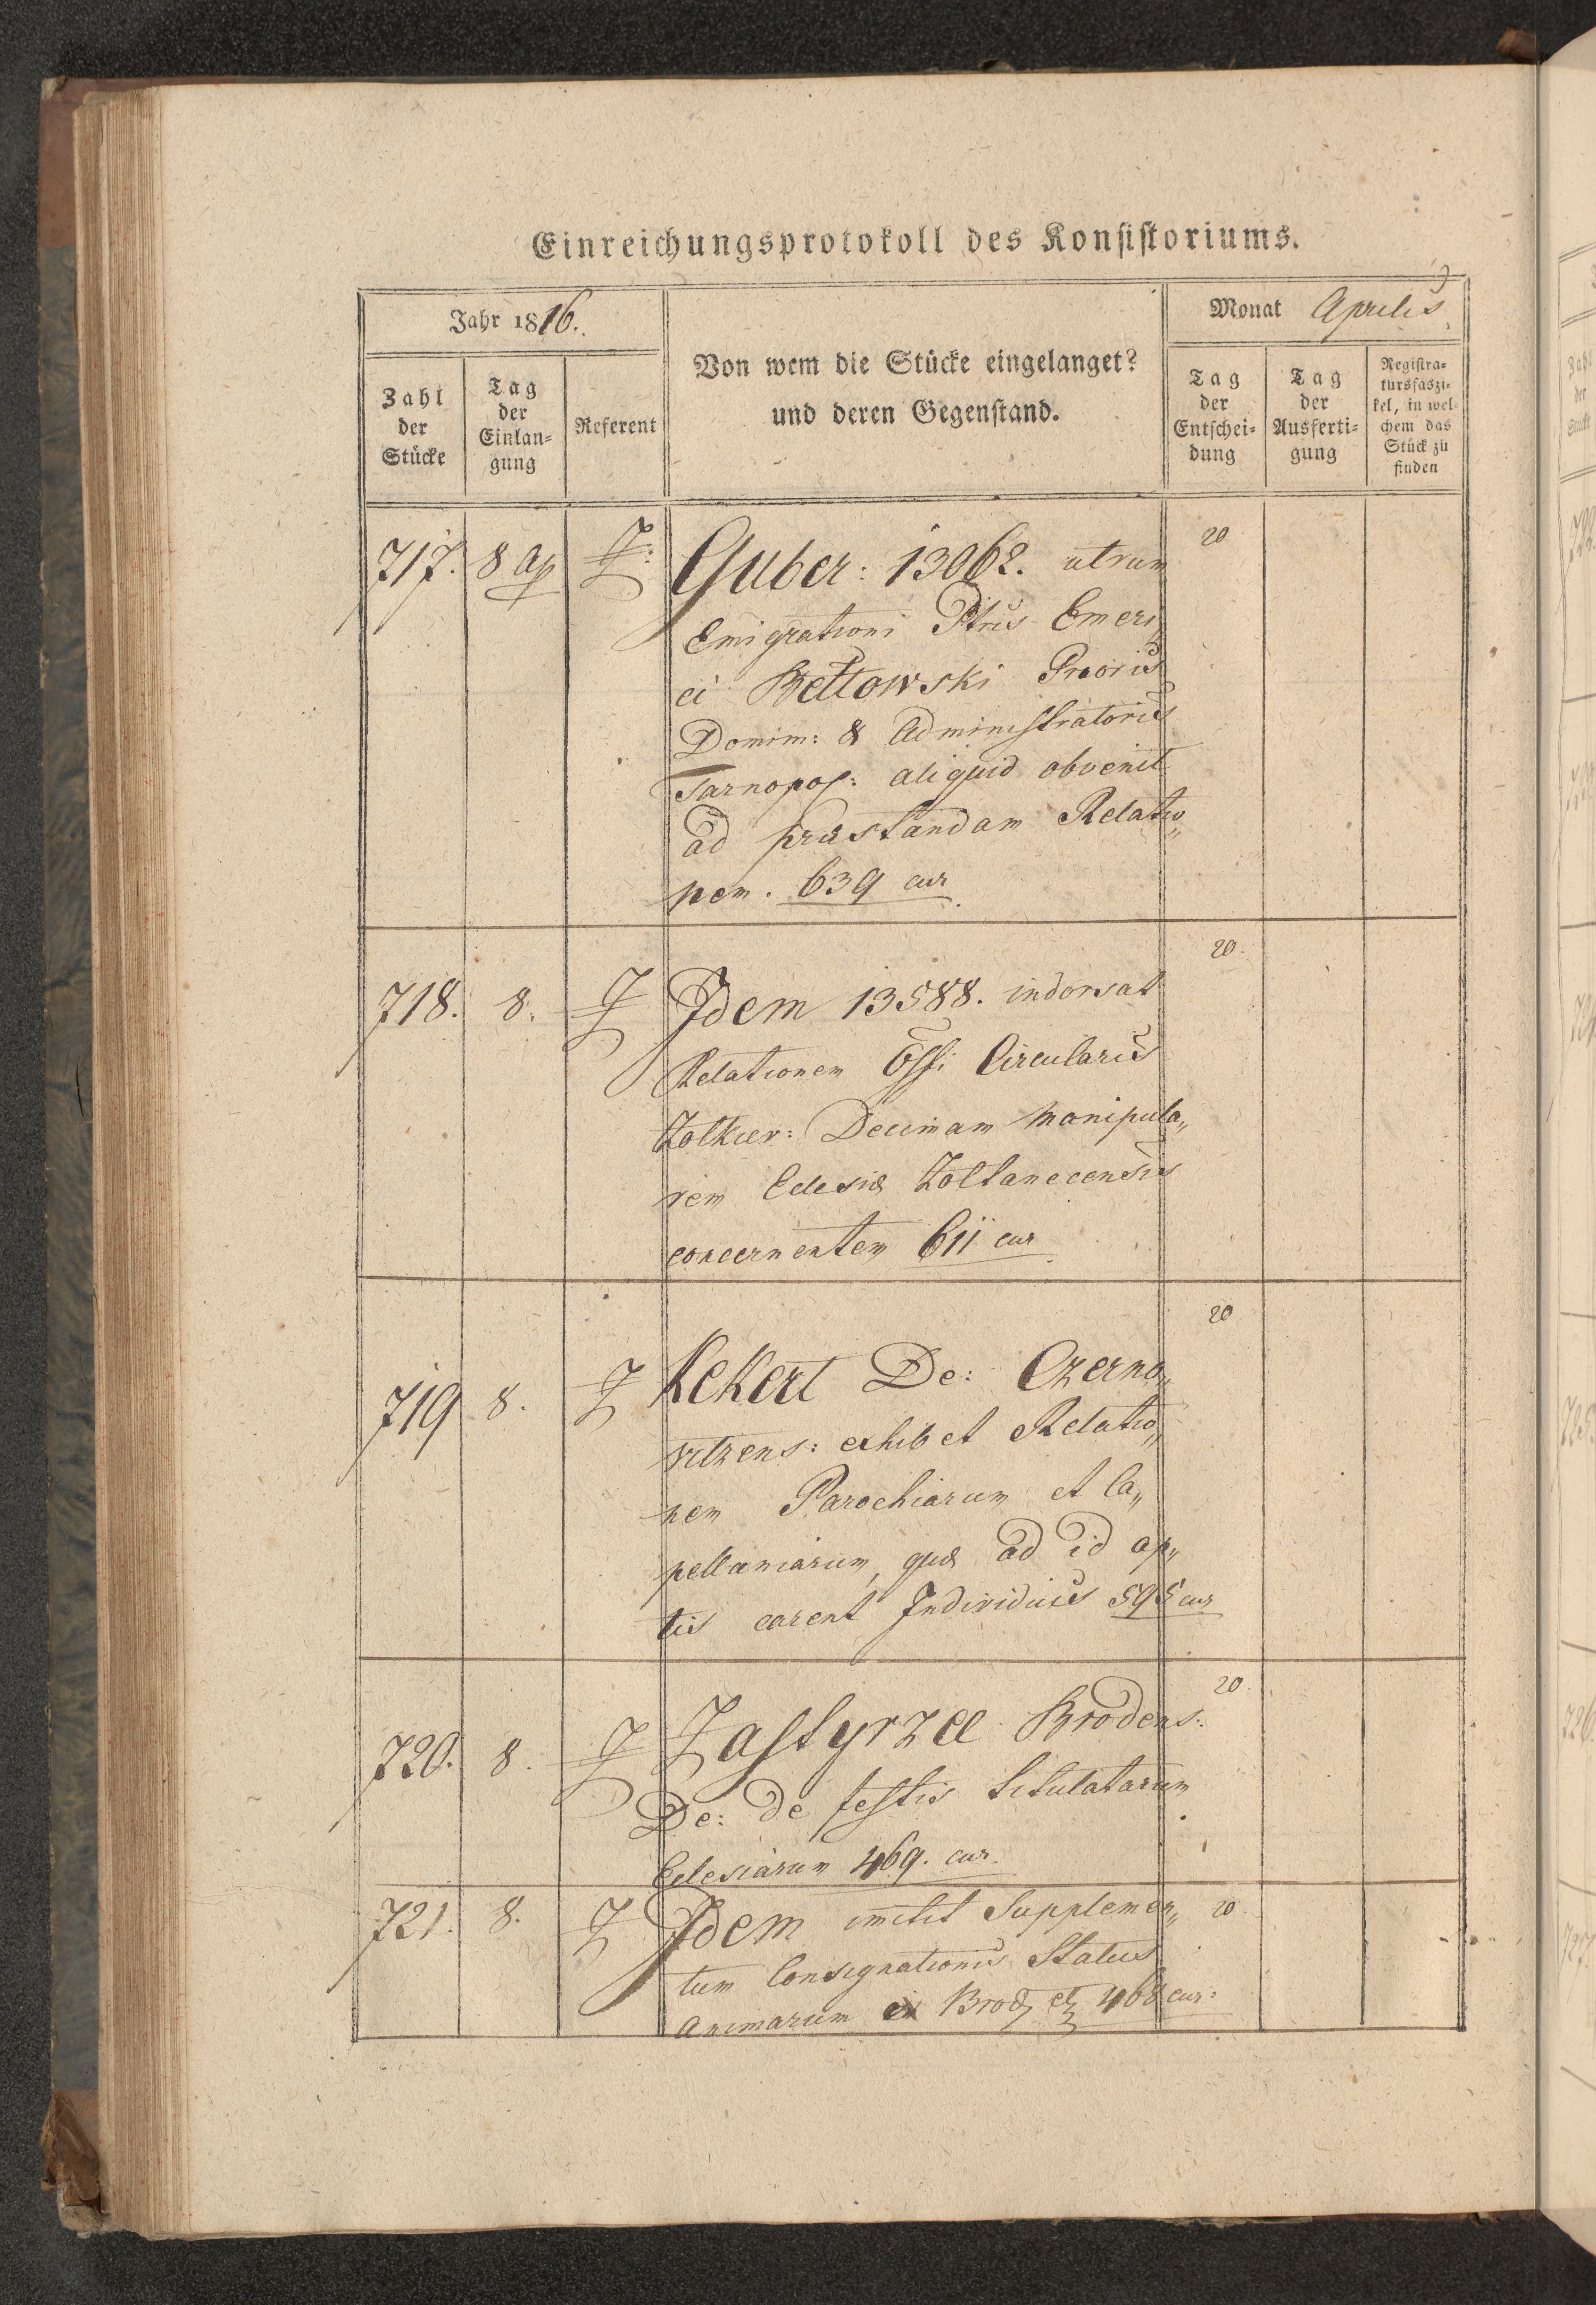 Einreichungsprotokoll des Konsistoriums.
Jahr 1816.
Monat Aprilis
Zahl der Stücke
Tag der Einlan-gung
Referent
Von wem die Stücke eingelanget?
und deren Gegenstand.
Tag der Entschei-dung
Tag der Ausferti-gung
Registra-tursfaszi-kel, in wel-chem das Stück zu finden
717. 8 Ap Z: Guber: 13062. utrum 20
Emigrationi Ptris Emeri
ci Bełtowski Prioris
Domin: & Administratoris
Tarnopol: aliquid obvenit
ad præstandam Relatio„
nem. 639 cur
718. 8. Z Idem 13588. indorsat 20.
Relationem Offi: Circularis
Zolkiev: Decimam manipula„
rem Eclesiæ Zoltanecensis
concernentem 611 cur
719 8. Z Kekert De: Czerno„ 20
vitzens: exhibet Relatio„
nem Parochiarum et Ca„
pellaniarum, quæ ad id ap„
tis carent Individuis 595 cur
720. 8. Z Zastyrzec Brodens: 20
De: de festis titulatarum
Eclesiarum 469. cur.
721. 8. Z Idem mittit Supplemen„ 20
tum Consignationis Status
Animarum ex Brod, 468 cur: